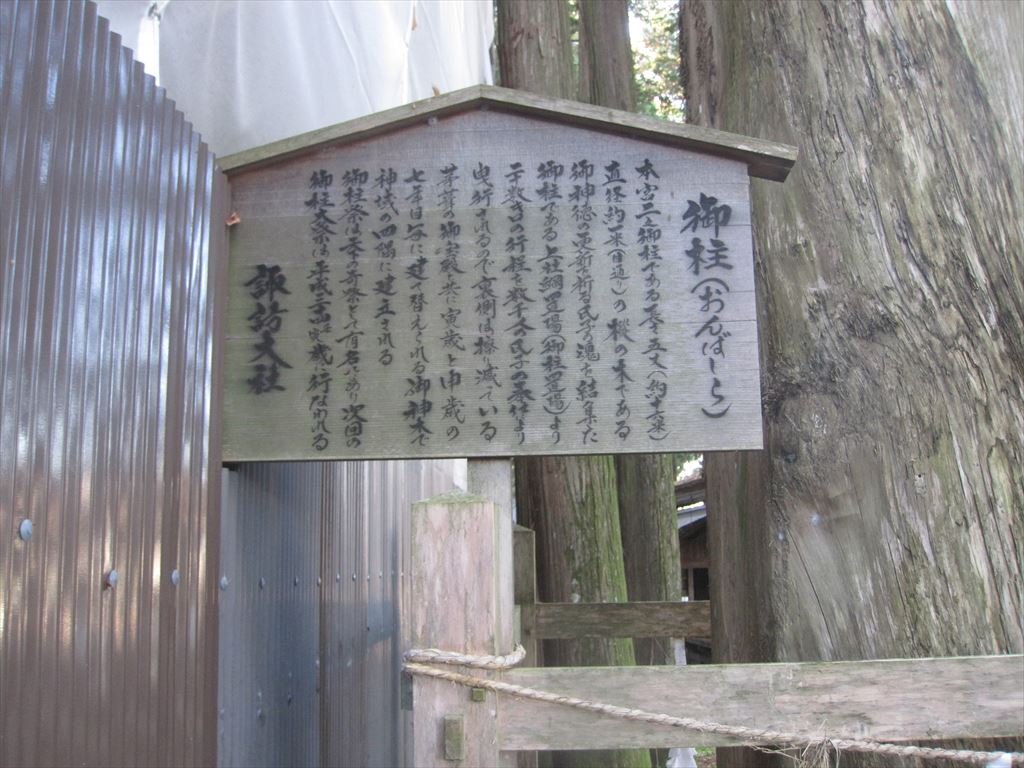 御柱(おんばしら)
本宮二之御柱である長さ五丈(約十六米)
直径約一米(目通り)の樅の木である
御神徳の更新を祈る氏子の魂を結集た
御柱である上社綱置場(御柱置場)より
二十数きの行程を数千人氏子の奉仕より
曳行されるので裏側は擦り減ている
茅葺の御宝殿と共に寅歳と申歳の
七年目毎に建て替えられる御神木で
神域の四隅に建立される
御柱祭は天下の奇祭として有名であり次回の
御柱大祭は平成二十二年寅歳に行なわれる
諏訪大社